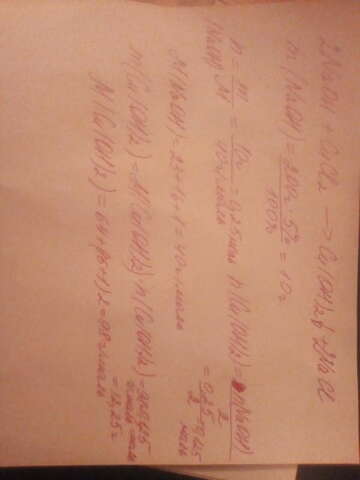 2NaOH + CuCl2 → Cu(OH)2↓ + 2NaCl
m(NaOH) = 200г · 5% / 100% = 10г
n(NaOH) = m / M = 10г / 40г/моль = 0,25моль n(Cu(OH)2) = n(NaOH) / 2
= 0,25 / 2 = 0,125 моль
M(NaOH) = 23+16+1 = 40г/моль
m(Cu(OH)2) = M(Cu(OH)2) · n(Cu(OH)2) =
= 12,25г
M(Cu(OH)2) = 64+(16+1)·2 = 98г/моль